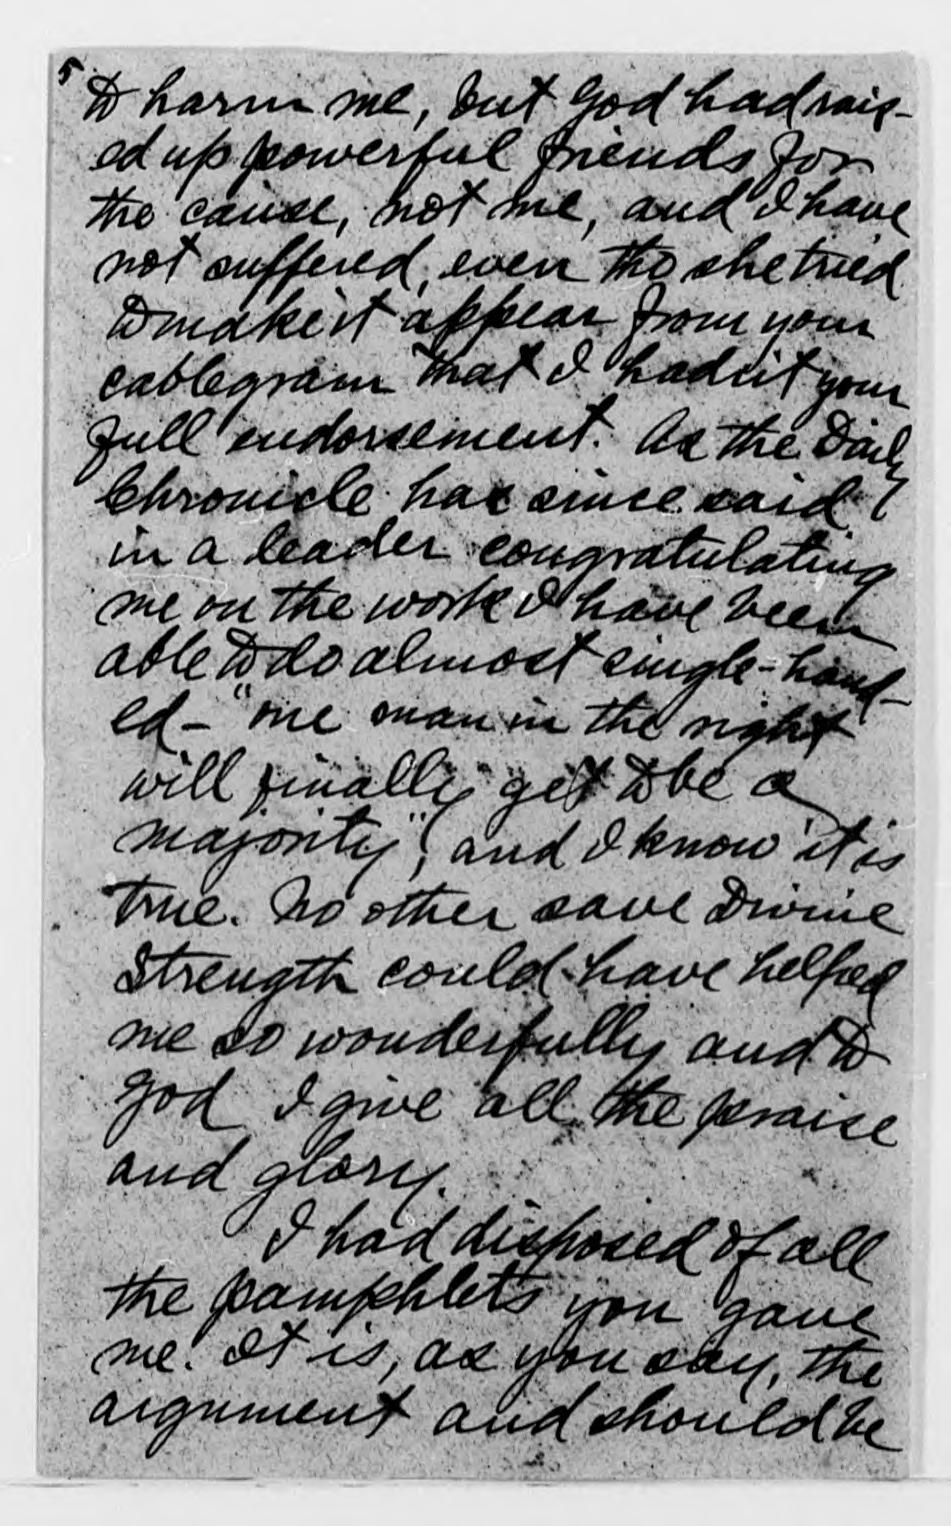 5
to harm me, but God had rais-
ed up powerful friends for
the cause, not me, and I have
not suffered, even tho she tried
to make it appear from your
cablegram that I hadn't your
full endorsement. As the Daily
Chronicle has since said
in a leader congratulating
me on the work I have been
able to do almost single-hand-
ed - "one man in the right
will finally get to be a
majority", and I know it is
true. No other save Divine
Strength could have helped
me so wonderfully and to
God I give all the praise
and glory.
I had disposed of all
the pamphlets you gave
me. It is, as you say, the
argument and should be